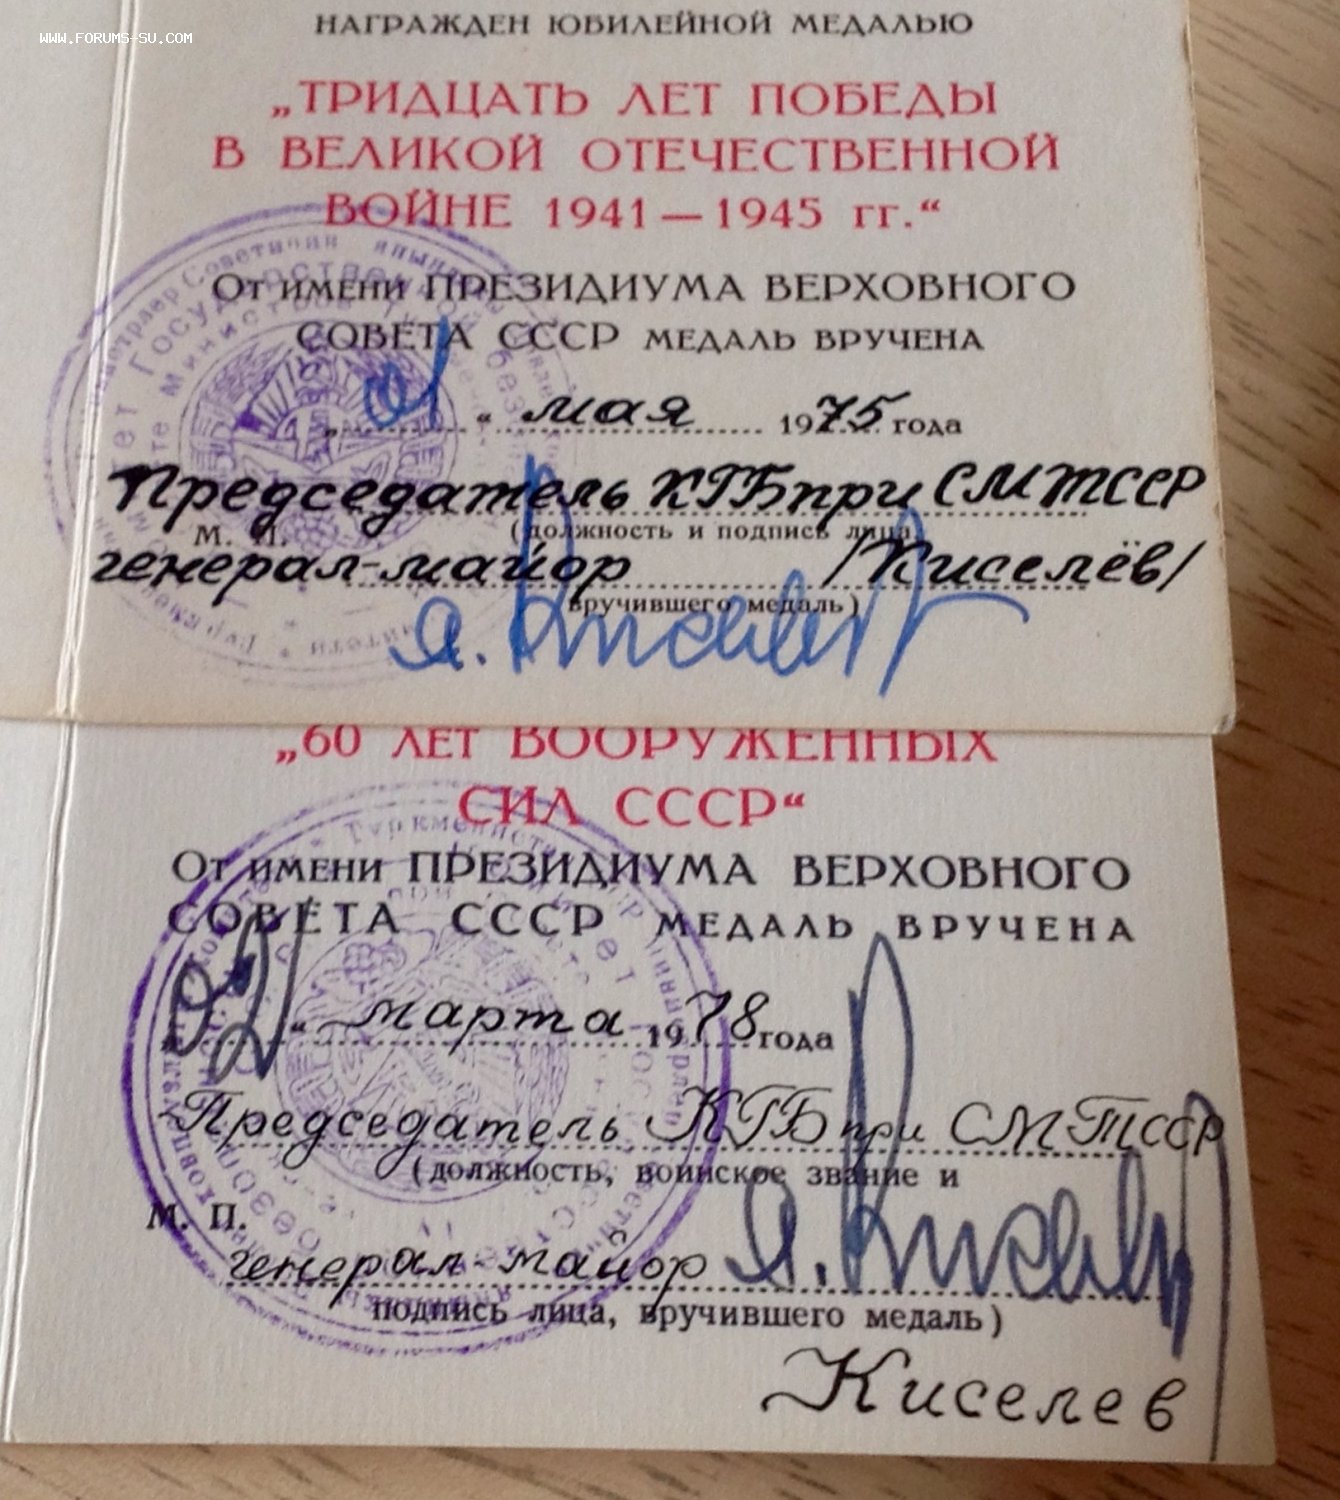 WWW.FORUMS-SU.COM
НАГРАЖДЕН ЮБИЛЕЙНОЙ МЕДАЛЬЮ
„ТРИДЦАТЬ ЛЕТ ПОБЕДЫ
В ВЕЛИКОЙ ОТЕЧЕСТВЕННОЙ
ВОЙНЕ 1941—1945 гг.“
От имени ПРЕЗИДИУМА ВЕРХОВНОГО
СОВЕТА СССР МЕДАЛЬ ВРУЧЕНА
“ мая 1975 года
Председатель КГБ при СМ ТССР
М. П. (должность и подпись лица,
генерал-майор /Киселёв/
вручившего медаль)
Я. Киселев
„60 ЛЕТ ВООРУЖЕННЫХ
СИЛ СССР“
От имени ПРЕЗИДИУМА ВЕРХОВНОГО
СОВЕТА СССР МЕДАЛЬ ВРУЧЕНА
“ марта 1978 года
Председатель КГБ при СМ ТССР
(должность, воинское звание и
М. П.
генерал-майор Я. Киселев
подпись лица, вручившего медаль)
Киселев